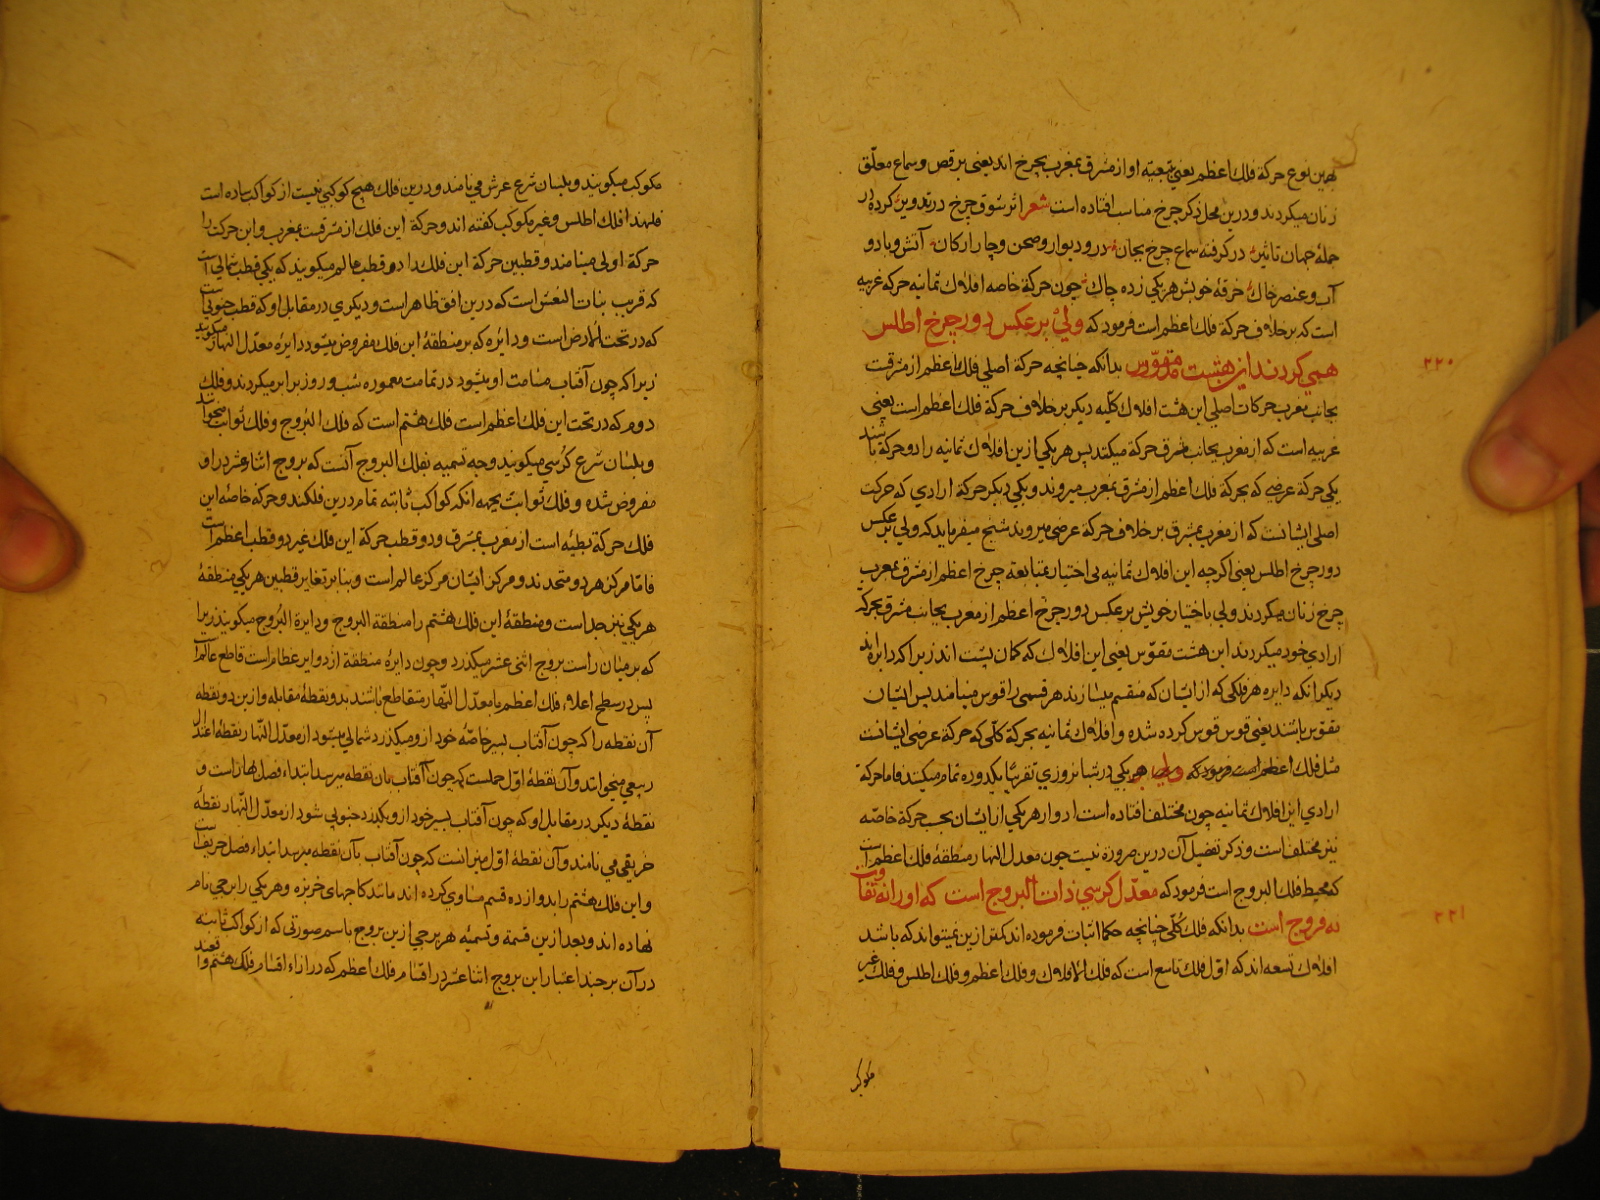 بهمین نوع حرکة فلک اعظم یعنی بتبعیّه او از مشرق بمغرب بچرخ اند یعنی برقص و سماع معلّق
زنان میکردند و درین محل ذکر چرخ مناسب افتاده است شعر از شوق چرخ در تدویر کرده در
جمله جهان تاثیر در کرفته سماع چرخ بجان در و دیوار و صحن و چار ارکان آتش و باد و
آب و عنصر خاک خرقهٔ خویش هر یکی زده چاک چون حرکة خاصه افلاک ثمانیه حرکه غربیه
است که بر خلاف حرکة فلک اعظم است فرمود که ولی بر عکس دور چرخ اطلس
۲۲۰
همی کردند این هشت مقوّس بدانکه چنانچه حرکة اصلی فلک اعظم از مشرقست
بجانب مغرب حرکات اصلی این هشت افلاک کلّیه دیکر بر خلاف حرکة فلک اعظم است یعنی
غربیه است که از مغرب بجانب مشرق حرکة میکنند پس هر یکی ازین افلاک ثمانیه را دو حرکة باشند
یکی حرکة عرضی که بحرکة فلک اعظم از مشرق بمغرب میروند و یکی دیکر حرکة ارادی که حرکت
اصلی ایشانست که از مغرب بمشرق بر خلاف حرکة عرضی میروند شیخ میفرماید که ولی بر عکس
دور چرخ اطلس یعنی اکرچه این افلاک ثمانیه بی اختیار بمتابعة چرخ اعظم از مشرق بمغرب
چرخ زنان میکردند ولی باختیار خویش بر عکس دور چرخ اعظم از مغرب بجانب مشرق بحرکة
ارادی خود میکردند این هشت مقوّس یعنی این افلاک که کمان پشت اند زیرا که دایره اند
دیکر آنکه دایره هر فلکی که از ایشان که منقسم میسازند هر قسمی را قوس مینامند پس ایشان
مقوّس باشند یعنی قوس قوس کرده شده و افلاک ثمانیه بحرکة کلّی که حرکة عرضی ایشانست
مثل فلک اعظم است فرمود که هر یکی در شبانروزی تقریبًا یکدوره تمام میکنند فاما حرکة
ارادی این افلاک ثمانیه چون مختلف افتاده است ادوار هر یکی از ایشان بحسب حرکة خاصّه
نیز مختلف است و ذکر تفصیل آن درین ضروره نیست چون معدل النهار منطقهٔ فلک اعظم است
که محیط فلک البروج است فرمود که معدّل کرسی ذات البروج است که او را نه تفاوت
۲۲۱
نه فروج است بدانکه فلک کُلّی چنانچه حکما اثبات فرموده اند کمتر ازین نمیتواند که باشد
افلاک تسعه اند که اوّل فلک تاسع است که فلک الافلاک و فلک اعظم و فلک اطلس و فلک غیر
مکوکب
مکوکب میکویند و بلسان شرع عرش می نامند و درین فلک هیچ کوکبی نیست از کواکب ساده است
فلهذا فلک اطلس و غیر مکوکب کفته اند و حرکة این فلک از مشرقست بمغرب و این حرکت را
حرکة اولی مینامند و قطبین حرکة این فلک را دو قطب عالم میکویند که یکی قطب شمالی است
که قریب بنات النعش است که درین افق ظاهر است و دیکری در مقابل او که قطب جنوبی است
که در تحت الارض است و دایره که بر منطقهٔ این فلک مفروض میشود دایرهٔ معدّل النهار میکویند
زیرا که چون آفتاب مسامت او میشود در تمامت معموره شب و روز برابر میکردند و فلک
دوم که در تحت این فلک اعظم است فلک هشتم است که فلک البروج و فلک ثوابت میخوانند
و بلسان شرع کرسی میکویند وجه تسمیه بفلک البروج آنست که بروج اثنا عشر در او
مفروض شده و فلک ثوابت بجهه آنکه کواکب ثابته تمام درین فلکند و حرکة خاصّه این
فلک حرکة بطیئه است از مغرب بمشرق و دو قطب حرکة این فلک غیر دو قطب اعظم است
فامّا مرکز هر دو متحدند و مرکز ایشان مرکز عالم است و بنابر تغایر قطبین هر یکی منطقهٔ
هر یکی نیز جداست و منطقهٔ این فلک هشتم را منطقة البروج و دایرة البُروج میکویند زیرا
که بر میان راست بروج اثنی عشر میکذرد و چون دایرهٔ منطقة از دوایر عظام است قاطع عالم است
پس در سطح اعلاء فلک اعظم با معدّل النّهار متقاطع باشند بدو نقطهٔ مقابله و ازین دو نقطه
آن نقطه را که چون آفتاب بسیر خاصّهٔ خود از و میکذرد شمالی میشود از معدّل النّهار نقطهٔ اعتدال
ربیعی میخوانند و آن نقطهٔ اوّل حملست که چون آفتاب بان نقطه میرسد ابتداء فصل بهار است و
نقطهٔ دیکر در مقابل او که چون آفتاب بسیر خود از و بکذرد جنوبی شود از معدّل النّهار نقطهٔ
خریفی می نامند و آن نقطهٔ اوّل میزانست که چون آفتاب بآن نقطه میرسد ابتداء فصل خریف است
و این فلک هشتم را بدوازده قسم مساوی کرده اند مانند کاجهای خربزه و هر یکی را برجی نام
نهاده اند و بعد ازین قسمة و تسمیه هر برجی ازین بروج باسم صورتی که از کواکب ثابته
در آن برج اعتبار این بروج اثنا عشر در اقسام فلک اعظم که در ازاء اقسام فلک هشتم واقعند